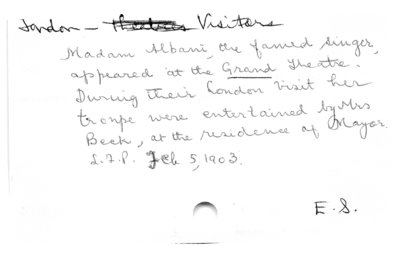 London — Theatres Visitors
Madam Albani, the famed singer,
appeared at the Grand Theatre.
During their London visit her
troupe were entertained by Mrs
Beck, at the residence of Mayor.
L.F.P. Feb 5, 1903.
E.S.